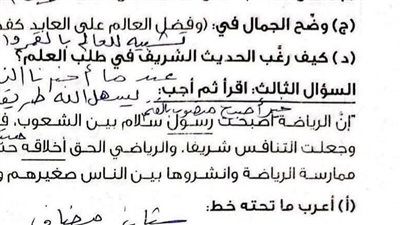 (ج) وضّح الجمال في: (وفضل العالم على العابد كفض
تشبيه للعالم بالقمر وا
(د) كيف رغّب الحديث الشريف في طلب العلم؟
عند ما أخبرنا الن
السؤال الثالث: اقرأ ثم أجب: يسهل الله طريق
خبر أصبح منصوب بالفتحة
إنّ الرياضة أصبحت رسول سلام بين الشعوب، ف
وجعلت التنافس شريفا، والرياضي الحق أخلاقه حس
ممارسة الرياضة وانشروها بين الناس صغيرهم و
(أ) أعرب ما تحته خط:
مضاف